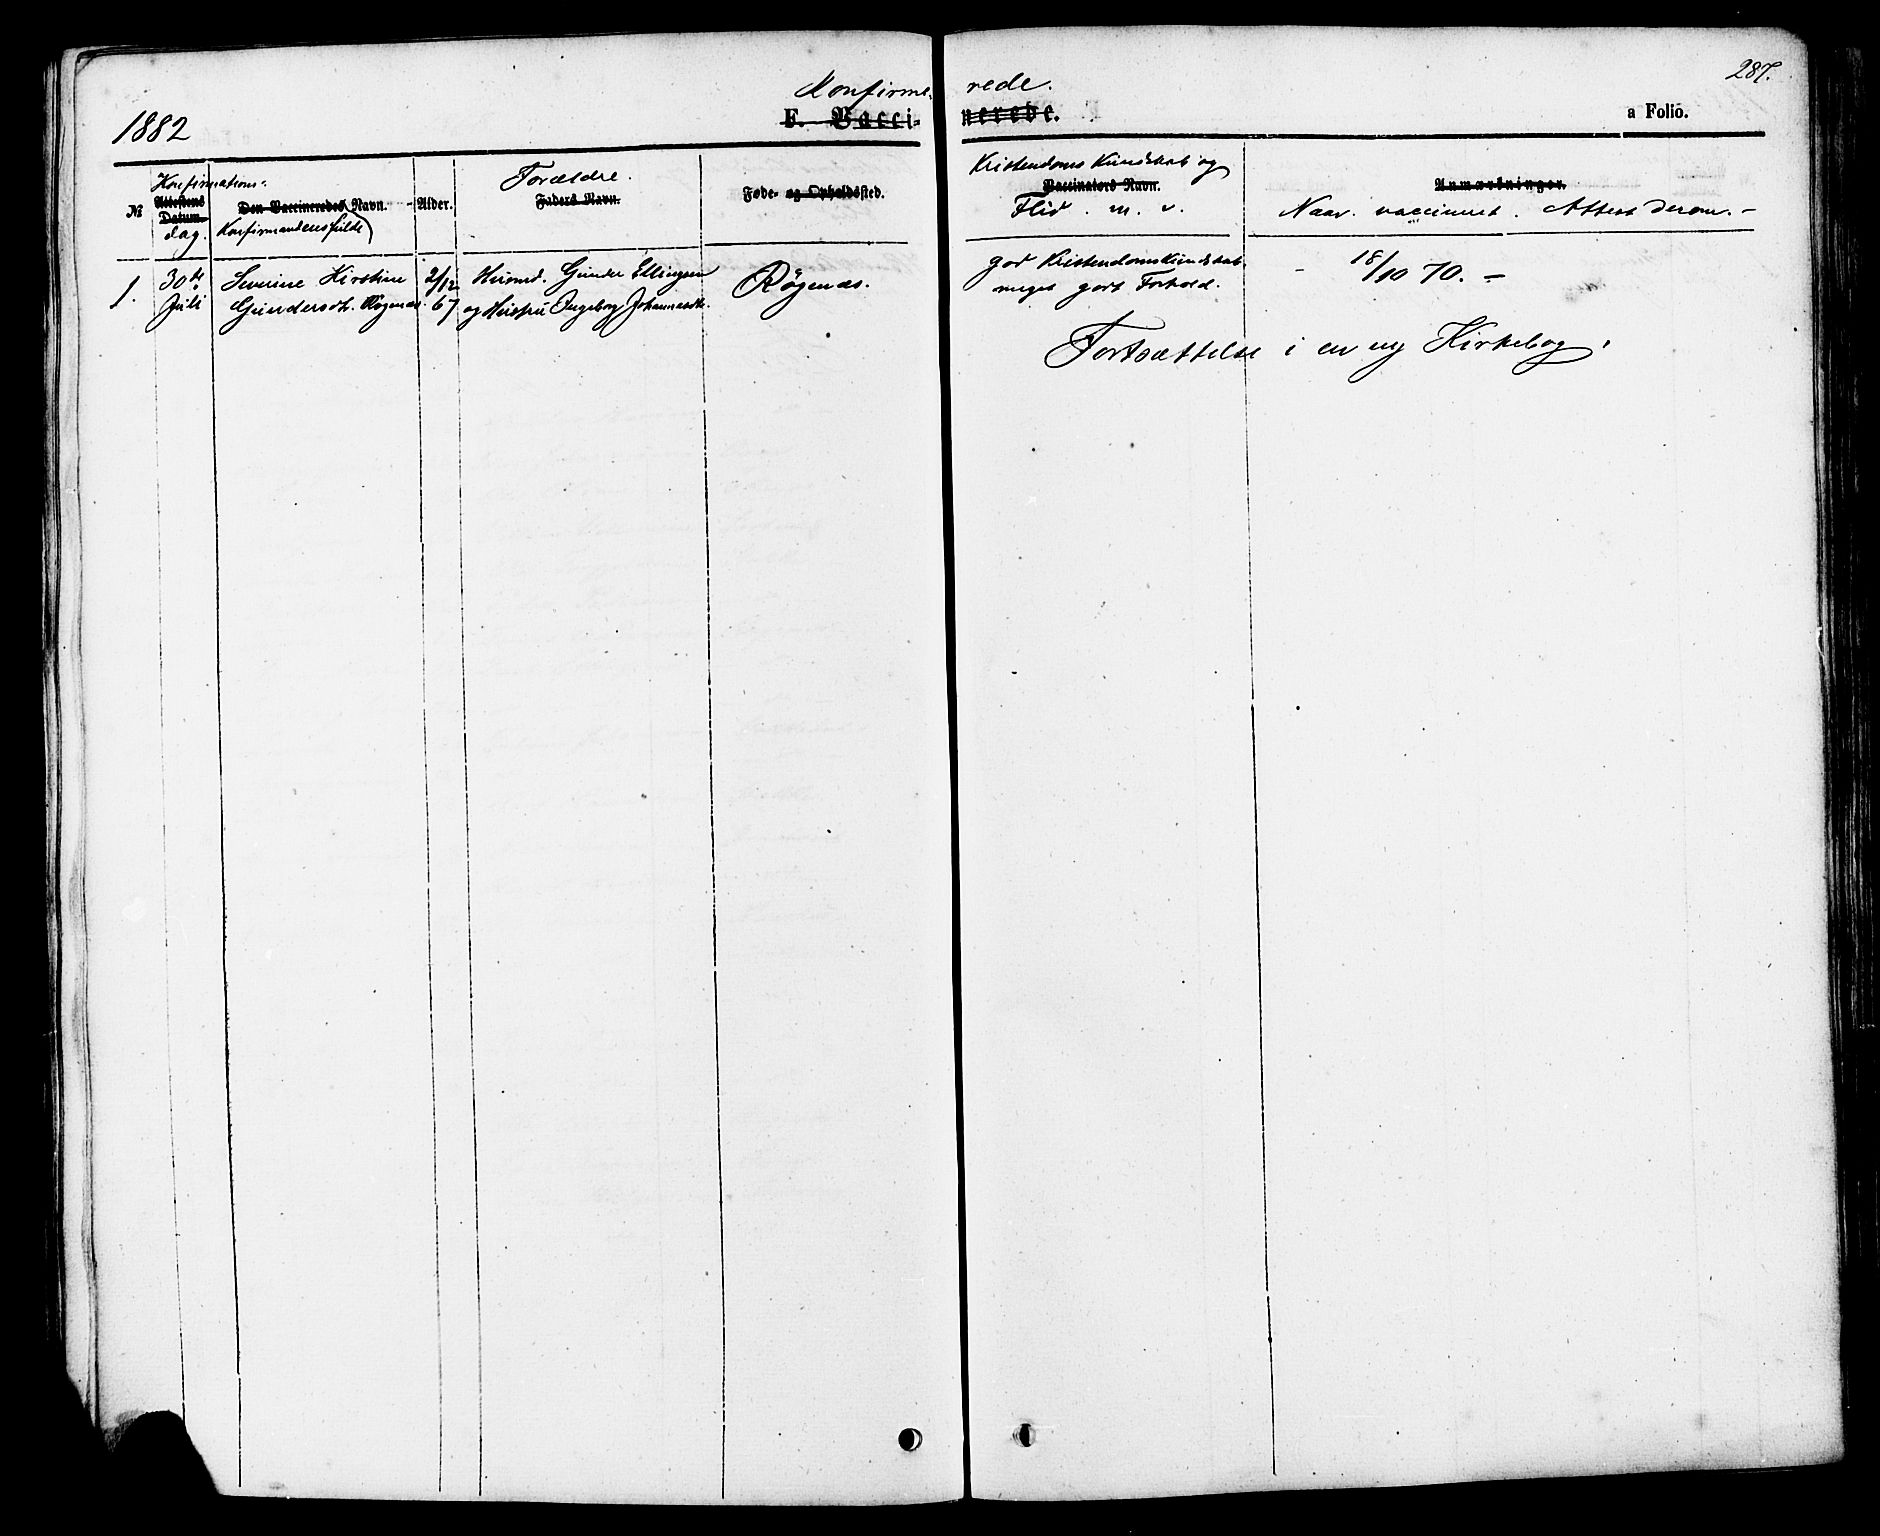 287.
Konfirme- rede.
1882 F. Vacci- nerede. a Folio.
Konfirmations-
№ Attestens Datum dag.
Den Vaccineredes Navn.
Konfirmandens fulde
Alder.
Forældre.
Faders Navn.
Føde- og Opholdssted.
Kristendoms Kundskab og
Vaccinatørs Navn.
Flid. m. v.
Anmærkninger.
Naar vaccineret. Attest derom. -
1. 30te Juli
Severine Kirstine
Gundersdtr. Røgenæs.
2/12 67
Husmd. Gunder Ellingsen
og Hustru Ingeborg Johannesdtr.
Røgenæs.
god Kristendomskundskab
meget godt Forhold.
- 18/10 70. -
Fortsættelse i en ny Kirkebog.